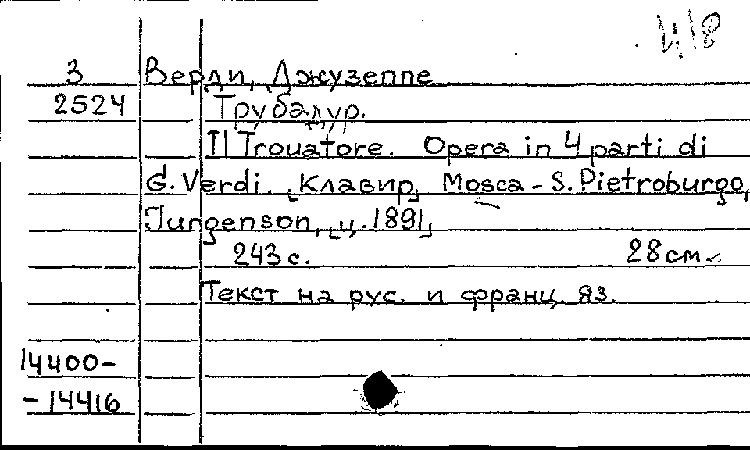 И18
3 Верди, Джузеппе
2524 Трубадур.
Il Trovatore. Opera in 4 parti di
G. Verdi. [Клавир] Mosca - S. Pietroburgo,
Jurgenson, [ц. 1891]
243 с. 28 см
Текст на рус. и франц. яз.
14400-
-14416